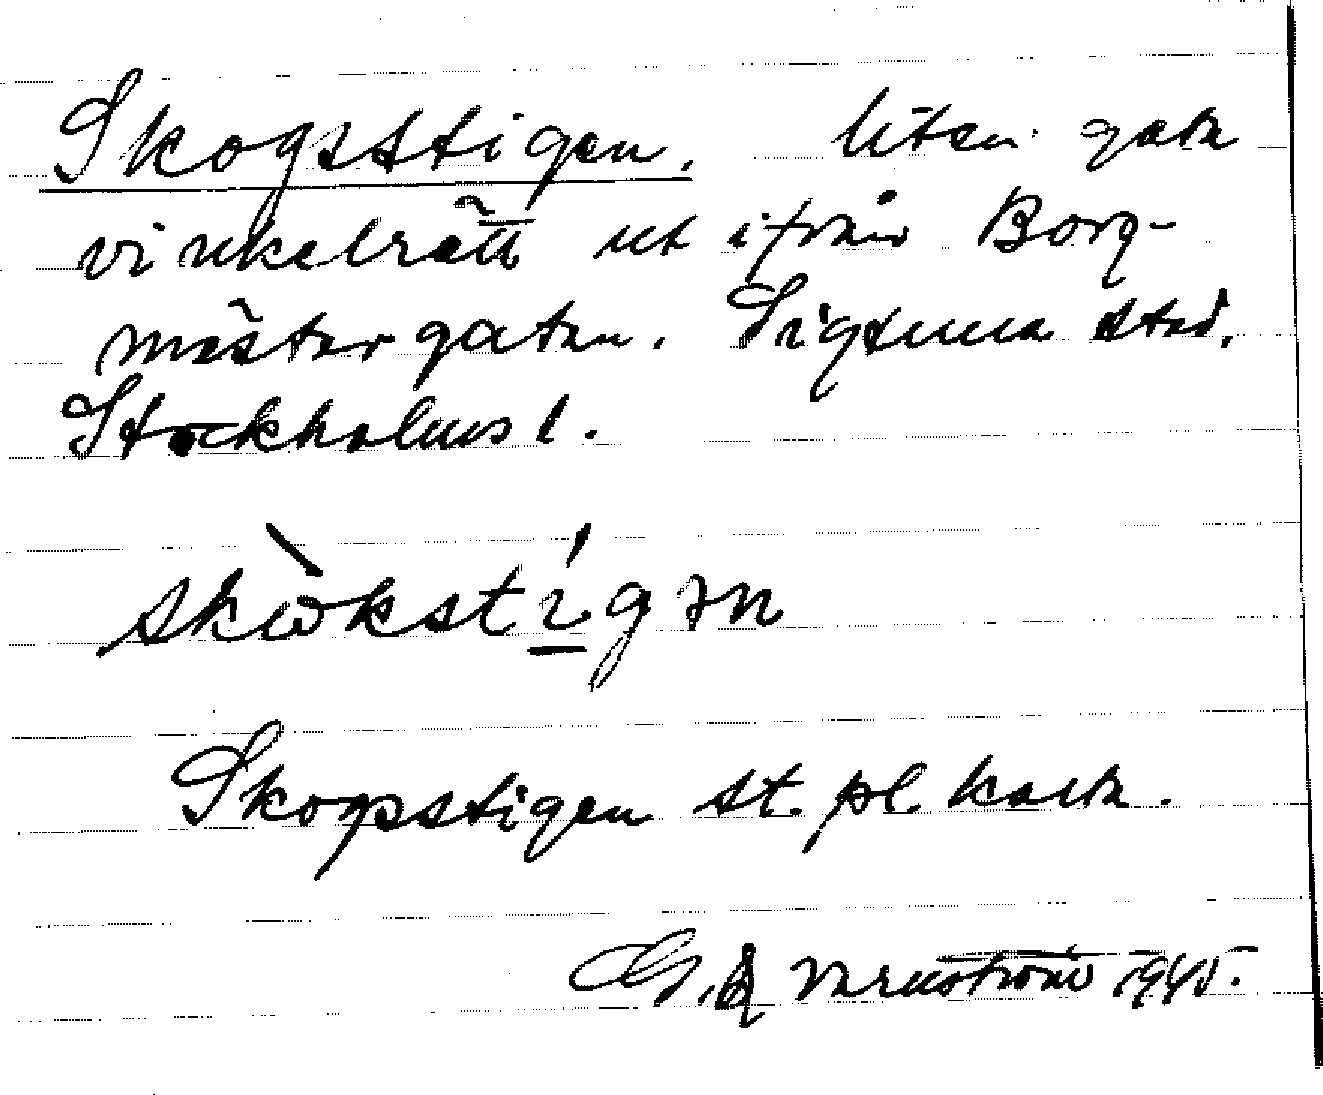 Skogsstigen. liten gata
vinkelrätt ut ifrån Borg-
mästargatan. Sigtuna stad,
Stockholms l.
skὼkstígən
Skogsstigen st. pl. karta.
G. Varnström 1945.